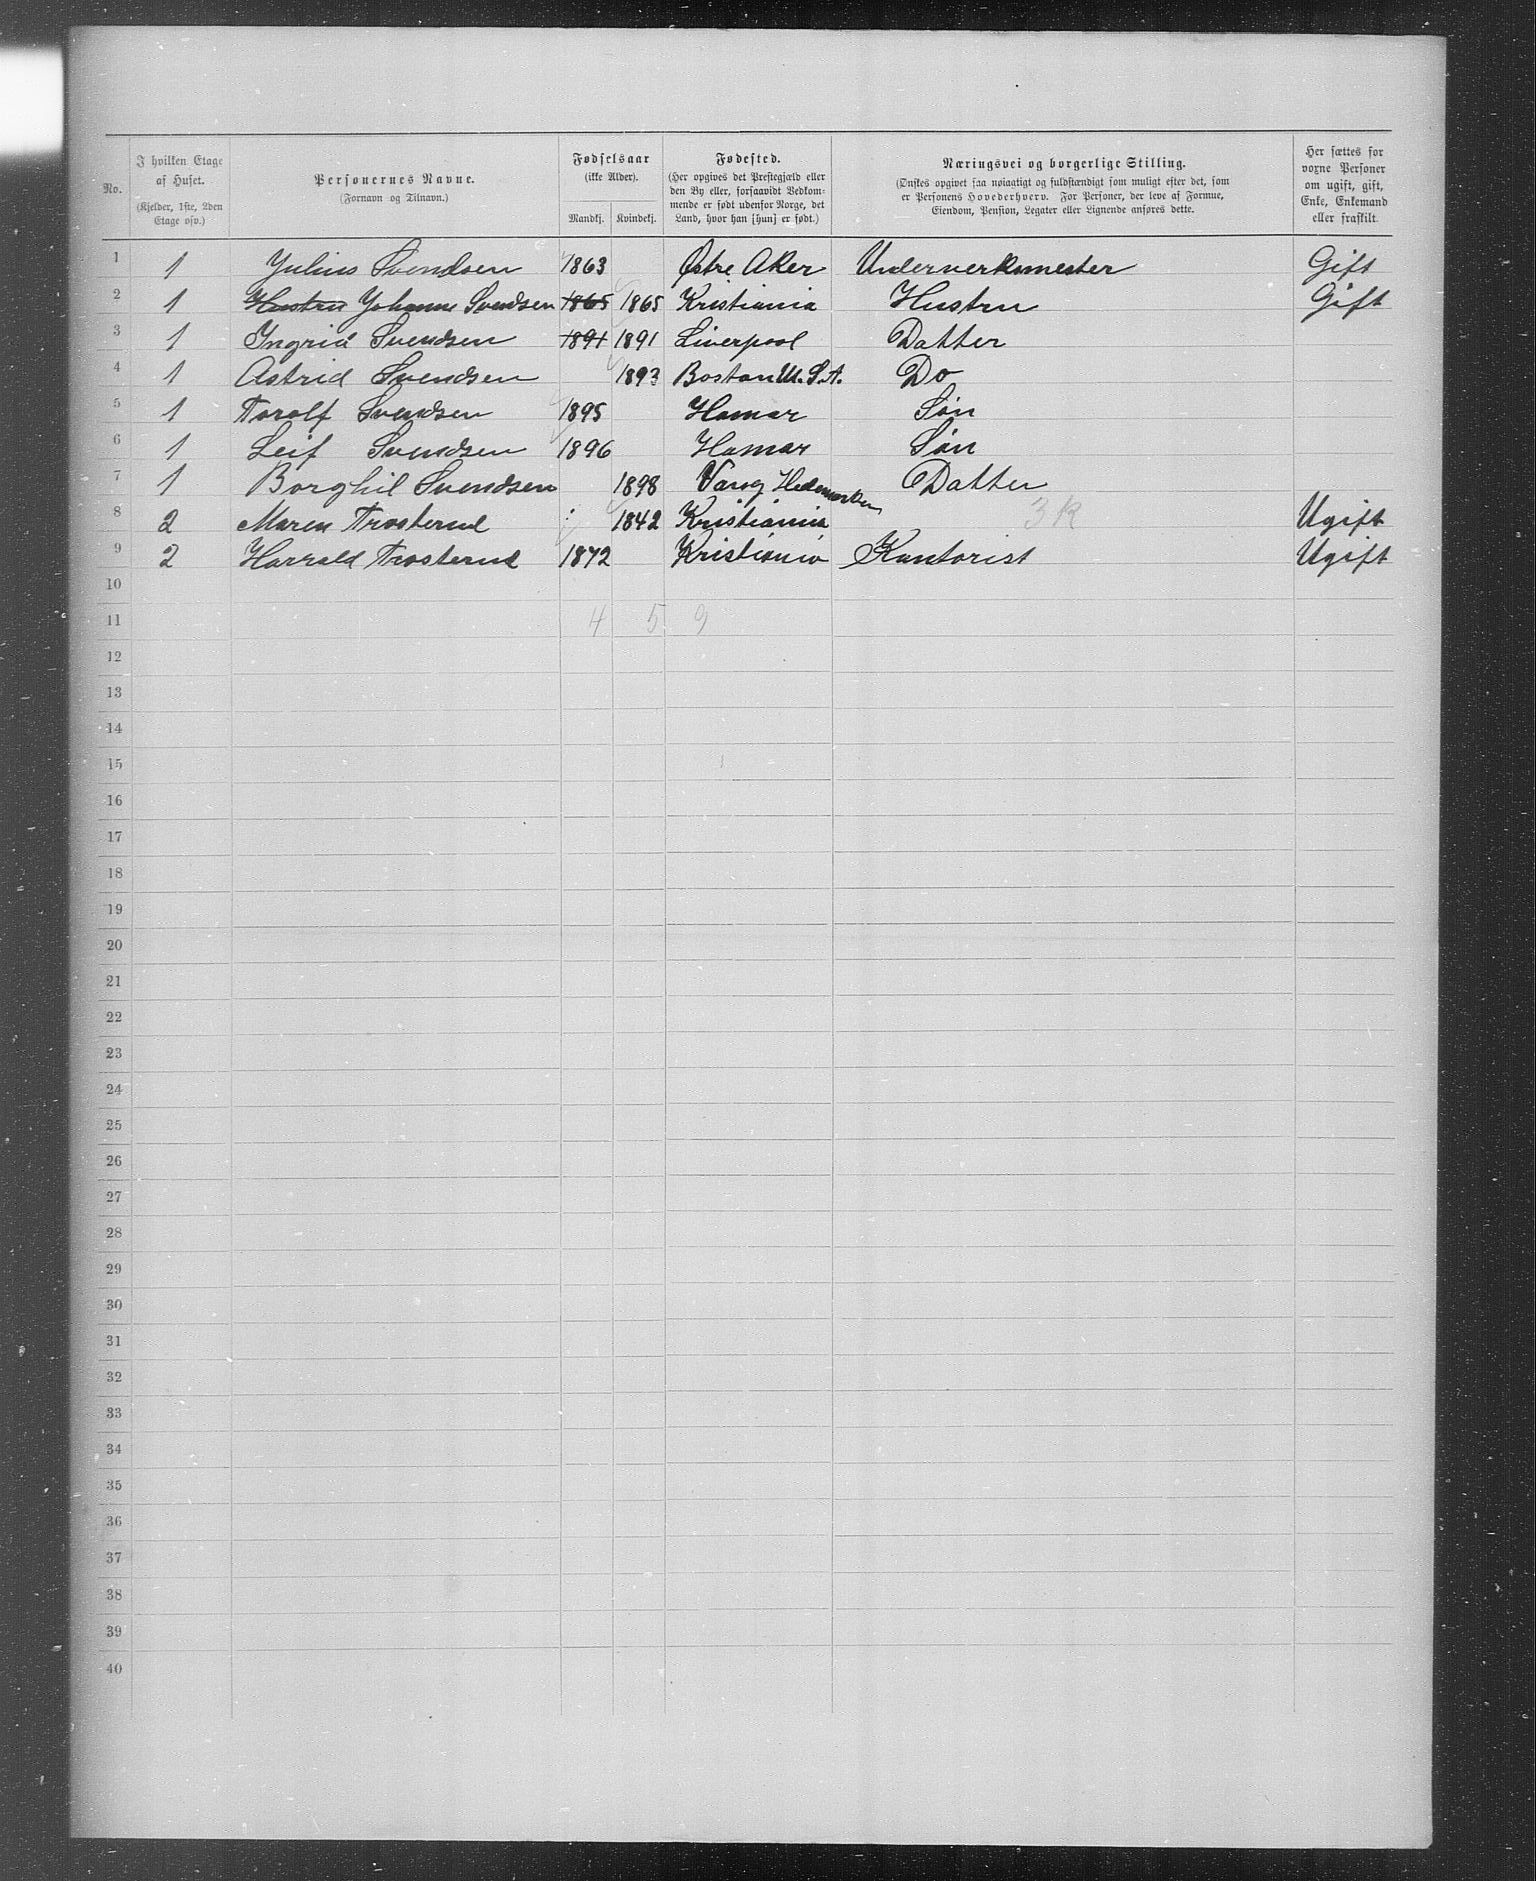 No.
I hvilken Etage af Huset.
(Kjelder, 1ste, 2den Etage osv.)
Personernes Navne.
(Fornavn og Tilnavn.)
Fødselsaar
(ikke Alder).
Mandkj. Kvindekj.
Fødested.
(Her opgives det Prestegjæld eller
den By eller, forsaavidt Vedkom-
mende er født udenfor Norge, det
Land, hvor han [hun] er født.)
Næringsvei og borgerlige Stilling.
(Ønskes opgivet saa nøiagtigt og fuldstændigt som muligt efter det, som
er Personens Hovederhverv. For Personer, der leve af Formue,
Eiendom, Pension, Legater eller Lignende anføres dette.
Her sættes for
voxne Personer
om ugift, gift,
Enke, Enkemand
eller fraskilt.
1 1 Julius Svendsen 1863 Østre Aker Underverksmester Gift
2 1 Hustru Johanne Svendsen 1865 1865 Kristiania Hustru Gift
3 1 Ingrid Svendsen 1891 1891 Liverpool Datter
4 1 Astrid Svendsen 1893 Boston U.S.A. Do
5 1 Torolf Svendsen 1895 Hamar Søn
6 1 Leif Svendsen 1896 Hamar Søn
7 1 Borghil Svendsen 1898 Vang Hedemarken Datter
8 2 Maren Trosterud 1842 Kristiania 3 K Ugift
9 2 Harrald Trosterud 1872 Kristiania Kontorist Ugift
10
11 4 5 9
12
13
14
15
16
17
18
19
20
21
22
23
24
25
26
27
28
29
30
31
32
33
34
35
36
37
38
39
40